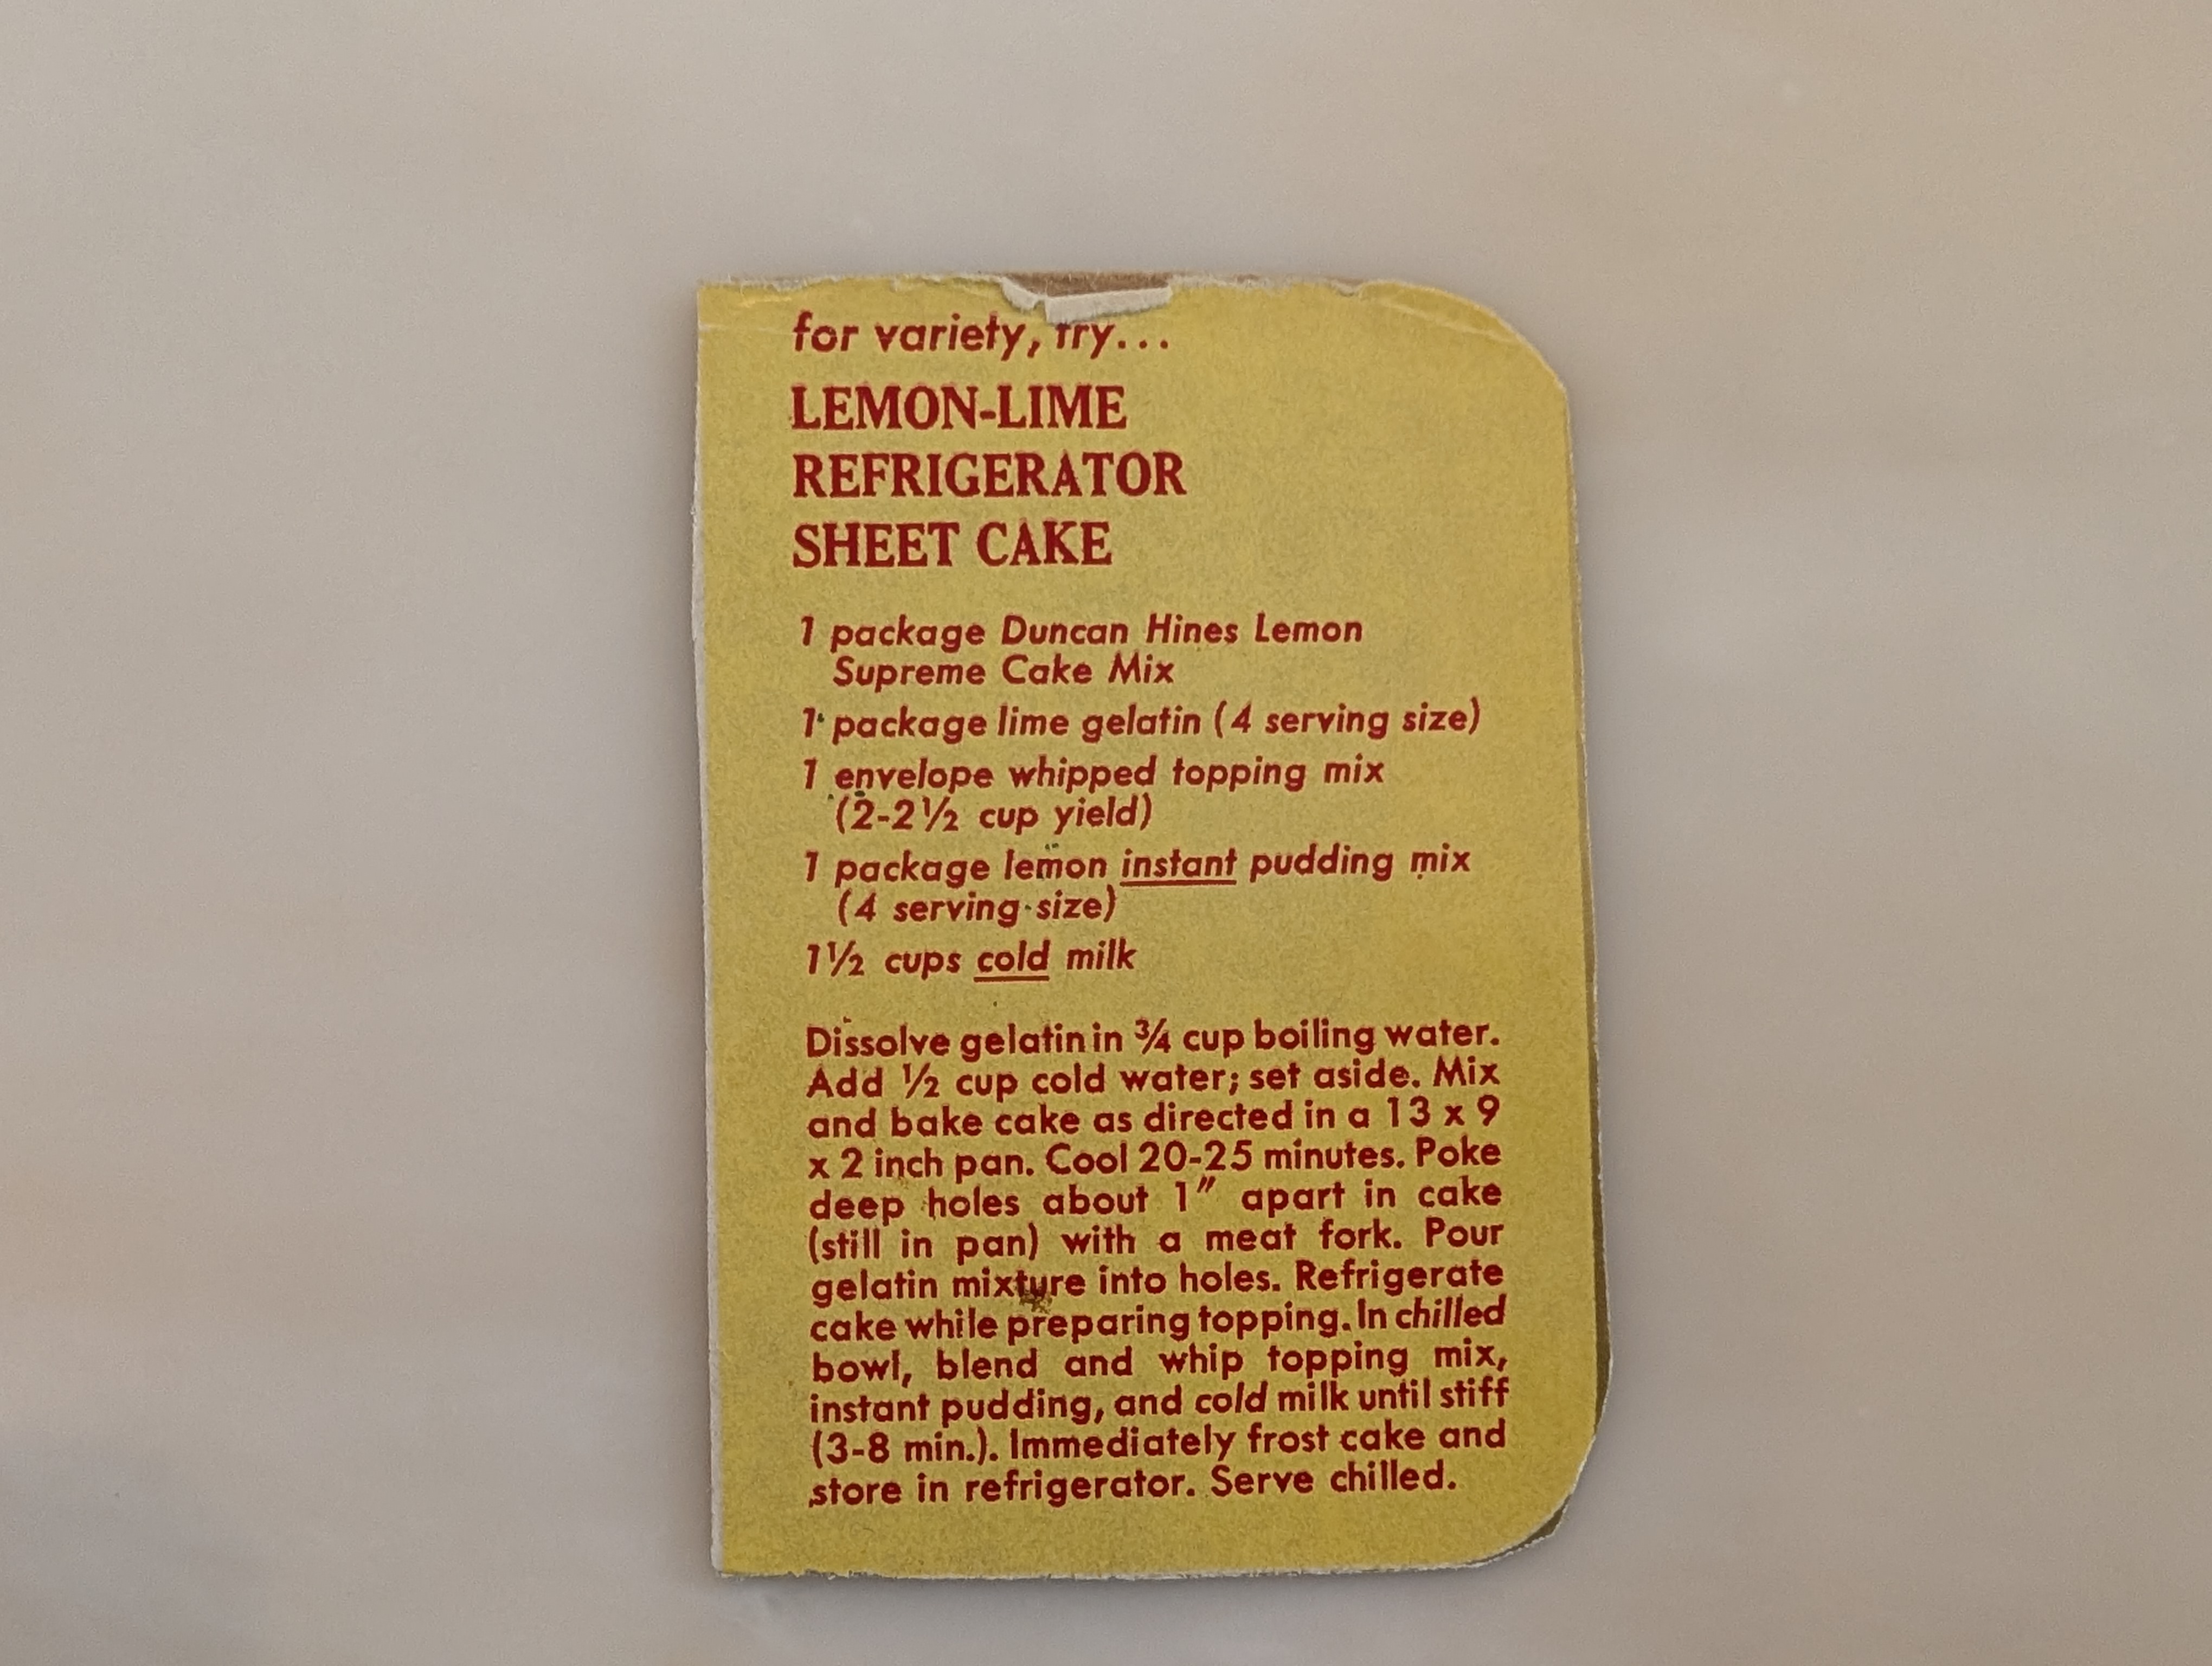 for variety, try...
LEMON-LIME
REFRIGERATOR
SHEET CAKE
1 package Duncan Hines Lemon
Supreme Cake Mix
1 package lime gelatin (4 serving size)
1 envelope whipped topping mix
(2-2½ cup yield)
1 package lemon instant pudding mix
(4 serving size)
1½ cups cold milk
Dissolve gelatin in ¾ cup boiling water.
Add ½ cup cold water; set aside. Mix
and bake cake as directed in a 13 x 9
x 2 inch pan. Cool 20-25 minutes. Poke
deep holes about 1″ apart in cake
(still in pan) with a meat fork. Pour
gelatin mixture into holes. Refrigerate
cake while preparing topping. In chilled
bowl, blend and whip topping mix,
instant pudding, and cold milk until stiff
(3-8 min.). Immediately frost cake and
store in refrigerator. Serve chilled.